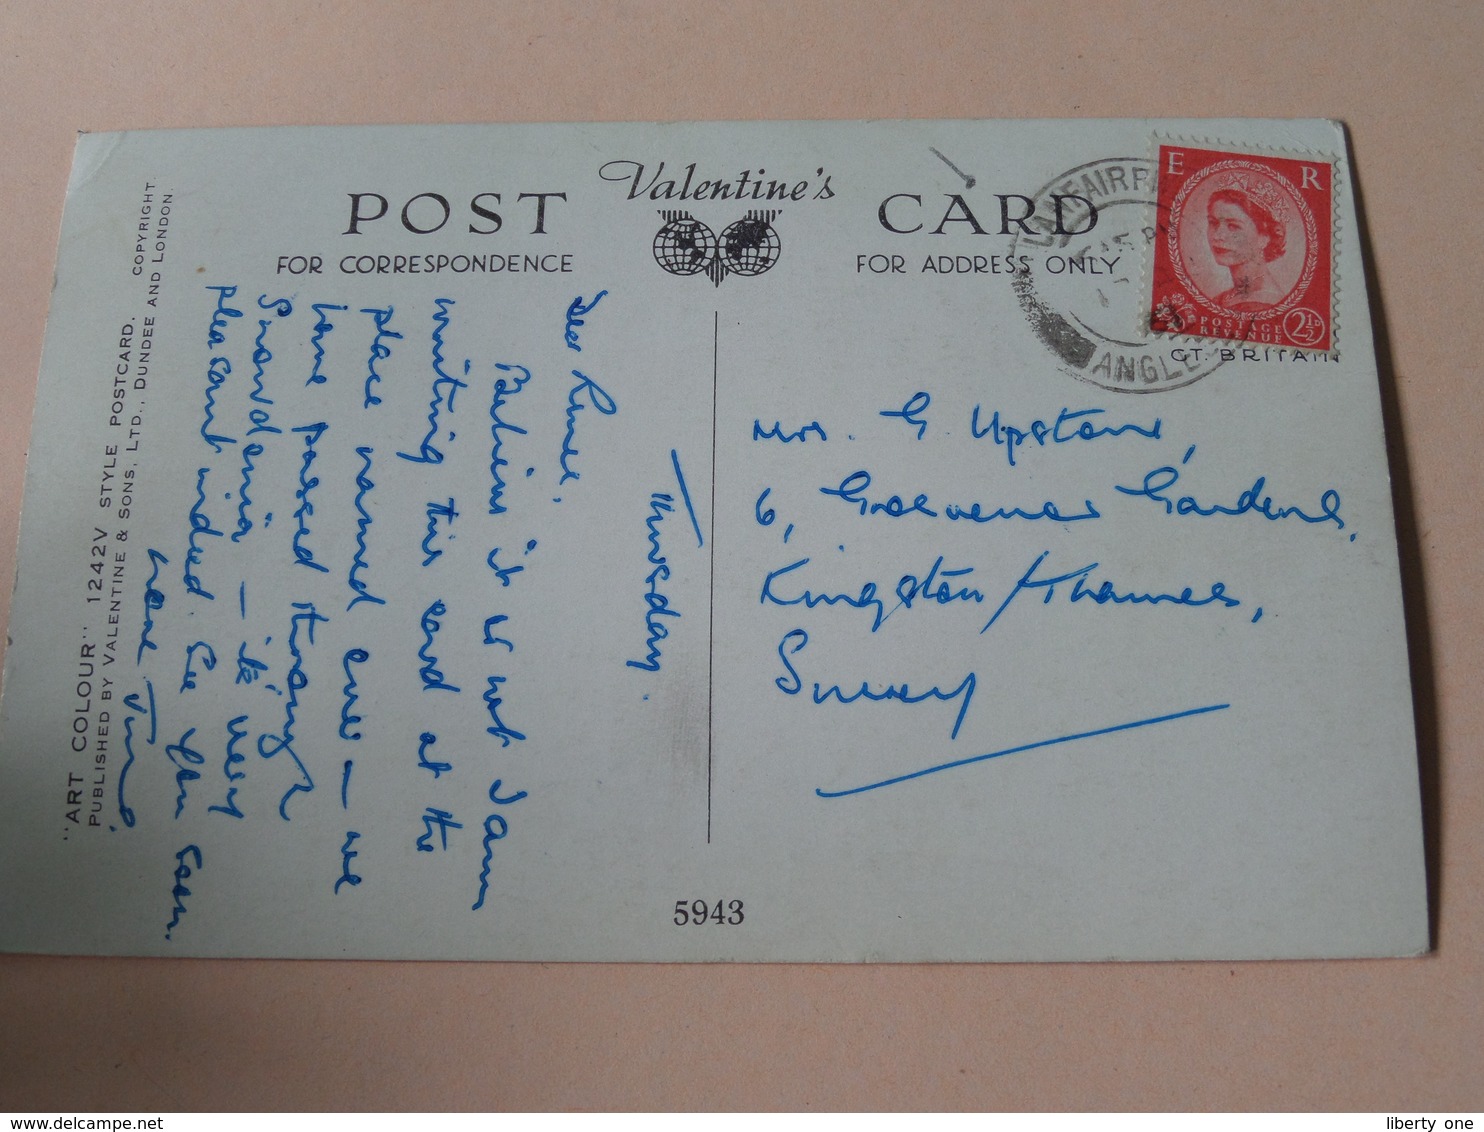 "ART COLOUR" 1242V STYLE POSTCARD. COPYRIGHT
PUBLISHED BY VALENTINE & SONS, LTD., DUNDEE AND LONDON.
POST Valentine's CARD
FOR CORRESPONDENCE
FOR ADDRESS ONLY
Thursday.
Dear Renee,
Believe it or not I am
writing this card at the
place named over — we
have passed through
Snowdonia — it's very
pleasant indeed. See you soon.
love
Mrs. G. Upstone,
6, Grosvenor Gardens,
Kingston/Thames,
Surrey
5943
E R
POSTAGE
REVENUE
2½D
GT. BRITAIN
LLANFAIR
ANGL
liberty one